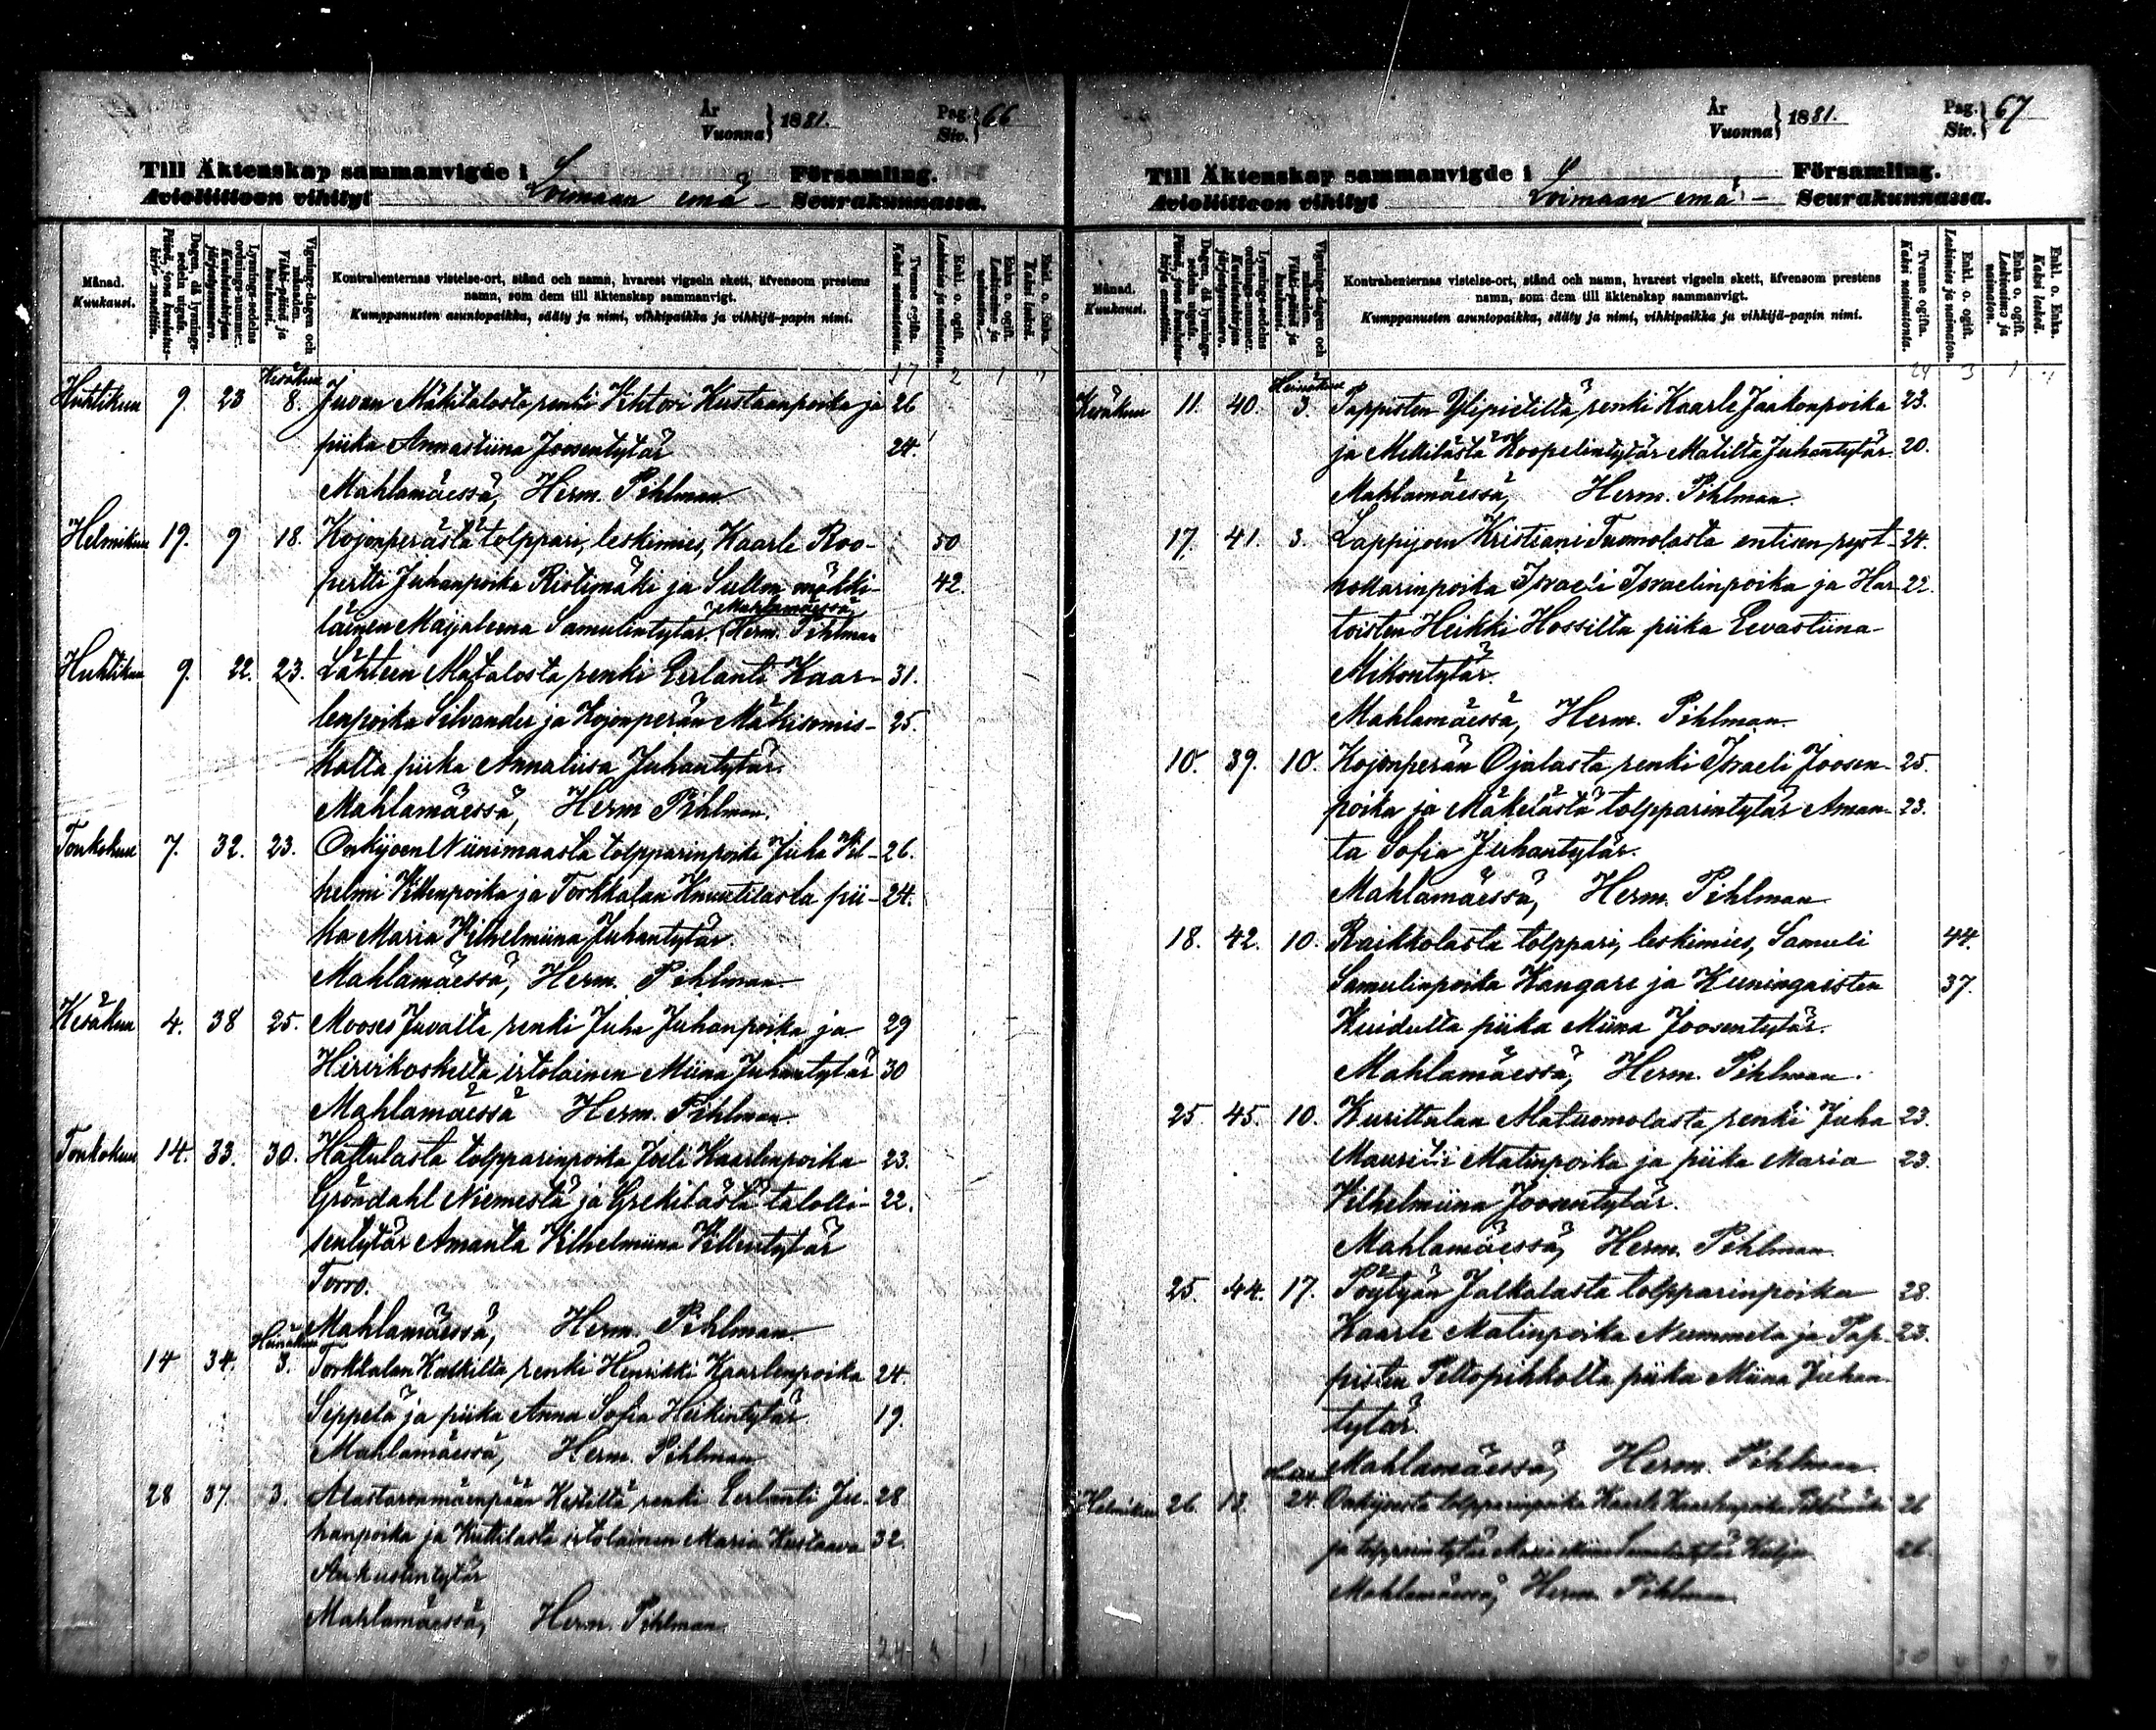 År
Vuonna } 1881.
Pag.
Siv. } 66
Till Äktenskap sammanvigde i Församling.
Avioliittoon vihityt Loimaan emä Seurakunnassa.
Månad.
Kuukausi.
Päivä, jona kuulutus-kirja annettiin.
Dagen, då lysnings-sedeln utgafs.
Kuulutuskirjan järjestysnumero.
Lysnings-sedelns ordnings-nummer.
Vihki-päivä ja kuukausi.
Vignings-dagen och månaden.
Kontrahenternas vistelse-ort, stånd och namn, hvarest vigseln skett, äfvensom prestens
namn, som dem till äktenskap sammanvigt.
Kumppanusten asuntopaikka, sääty ja nimi, vihkipaikka ja vihkijä-papin nimi.
Kaksi naimatonta.
Tvenne ogifta.
Leskimies ja naimaton.
Enkl. o. ogift.
Leskivaimo ja naimaton.
Enka o. ogift.
Kaksi leskeä.
Enkl. o. Enka.
17 2 1 "
Kesäkuu
Huhtikuu 9. 23 8. Juvan Mäkitalosta renki Vihtori Kustaanpoika ja 26
piika Annastiina Joosentytär 24.
Mahlamäessä, Herm. Pihlman
Helmikuu 19. 9 18. Kojonperästä tolppari, leskimies, Kaarle Roo- 50
pertti Juhanpoika Ristimäki ja Sullon mökki- 42.
Mahlamäessä
läinen Maijaleena Samulintytär. Herm. Pihlman
Huhtikuu 9. 22. 23. Lähteen Alatalosta renki Eerlanti Kaar- 31.
lenpoika Silvander ja Kojonperän Mäkisomis- 25.
kolta piika Annaliisa Juhantytär.
Mahlamäessä, Herm Pihlman.
Toukokuu 7. 32. 23. Onkijoen Niinimaasta tolpparinpoika Juha Vil- 26.
helmi Villenpoika ja Torkkalan Knuutilasta pii- 24.
ka Maria Vilhelmiina Juhantytär.
Mahlamäessä, Herm. Pihlman
Kesäkuu 4. 38 25. Mooses Juvalta renki Juha Juhanpoika ja 29
Hirvikoskelta irtolainen Miina Juhantytär 30
Mahlamäessä Herm. Pihlman.
Toukokuu 14. 33. 30. Hattulasta tolpparinpoika Joeli Kaarlenpoika 23.
Gröndahl Niemestä ja Grekilästä talolli- 22.
sentytär Amanta Vilhelmiina Villentytär
Torro.
Mahlamäessä, Herm. Pihlman
Heinäkuu
14 34. 3. Torkkalan Kalkilta renki Henrikki Kaarlenpoika 24.
Seppelä ja piika Anna Sofia Heikintytär 19.
Mahlamäessä, Herm. Pihlman
28 37. 3. Alastaronmäenpään Kestiltä renki Eerlanti Ju- 28
hanpoika ja Kuttilasta irtolainen Maria Kustaava 32.
Aukustintytär
Mahlamäessä, Herm. Pihlman
24 3 1
År
Vuonna } 1881.
Pag.
Siv. } 67
Till Äktenskap sammanvigde i Församling.
Avioliittoon vihityt Loimaan emä Seurakunnassa.
Månad.
Kuukausi.
Päivä, jona kuulutus-kirja annettiin.
Dagen, då lysnings-sedeln utgafs.
Kuulutuskirjan järjestysnumero.
Lysnings-sedelns ordnings-nummer.
Vihki-päivä ja kuukausi.
Vignings-dagen och månaden.
Kontrahenternas vistelse-ort, stånd och namn, hvarest vigseln skett, äfvensom prestens
namn, som dem till äktenskap sammanvigt.
Kumppanusten asuntopaikka, sääty ja nimi, vihkipaikka ja vihkijä-papin nimi.
Kaksi naimatonta.
Tvenne ogifta.
Leskimies ja naimaton.
Enkl. o. ogift.
Leskivaimo ja naimaton.
Enka o. ogift.
Kaksi leskeä.
Enkl. o. Enka.
24 3 1 "
Heinäkuu
Kesäkuu 11. 40. 3. Tappisten Ylipietiltä, renki Kaarle Jaakonpoika 23.
ja Mellilästä Koopelintytär Matilta Juhantytär. 20.
Mahlamäessä, Herm. Pihlman.
17. 41. 3. Lappijoen Kristiani Tuomolasta entisen 24.
Israeli Israelinpoika ja Har- 22.
toisten Heikki Hossilta piika Eevastiina
Mikontytär.
Mahlamäessä, Herm. Pihlman.
10. 39. 10. Kojonperän Ojalasta renki Israeli Joosen- 25.
poika ja Mäkelästä tolpparintytär Aman- 23.
ta Sofia Juhantytär.
Mahlamäessä, Herm. Pihlman
18. 42. 10. Raikkolasta tolppari, leskimies, Samuli 44.
Samulinpoika Kangare ja Kuningaisten 37.
piika Miina Joosentytär.
Mahlamäessä, Herm. Pihlman.
25 45. 10. Kurittulan Alatuomolasta renki Juha 23.
Mauriti Matinpoika ja piika Maria 23.
Vilhelmiina Joosentytär.
Mahlamäessä, Herm. Pihlman.
25. 44. 17. Pöytyän Jalkalasta tolpparinpoika 28.
Kaarle Matinpoika Nummela ja Tap- 23.
pisten Peltopihkolta piika Miina Juhan-
tytär.
Mahlamäessä, Herm. Pihlman.
Helmikuu 26. 13. 24. Onkijoesta tolpparinpoika Kaarle Kaarlenpoika 26
ja tolpparintytär Maria Miina Samulintytär 26.
Mahlamäessä, Herm. Pihlman